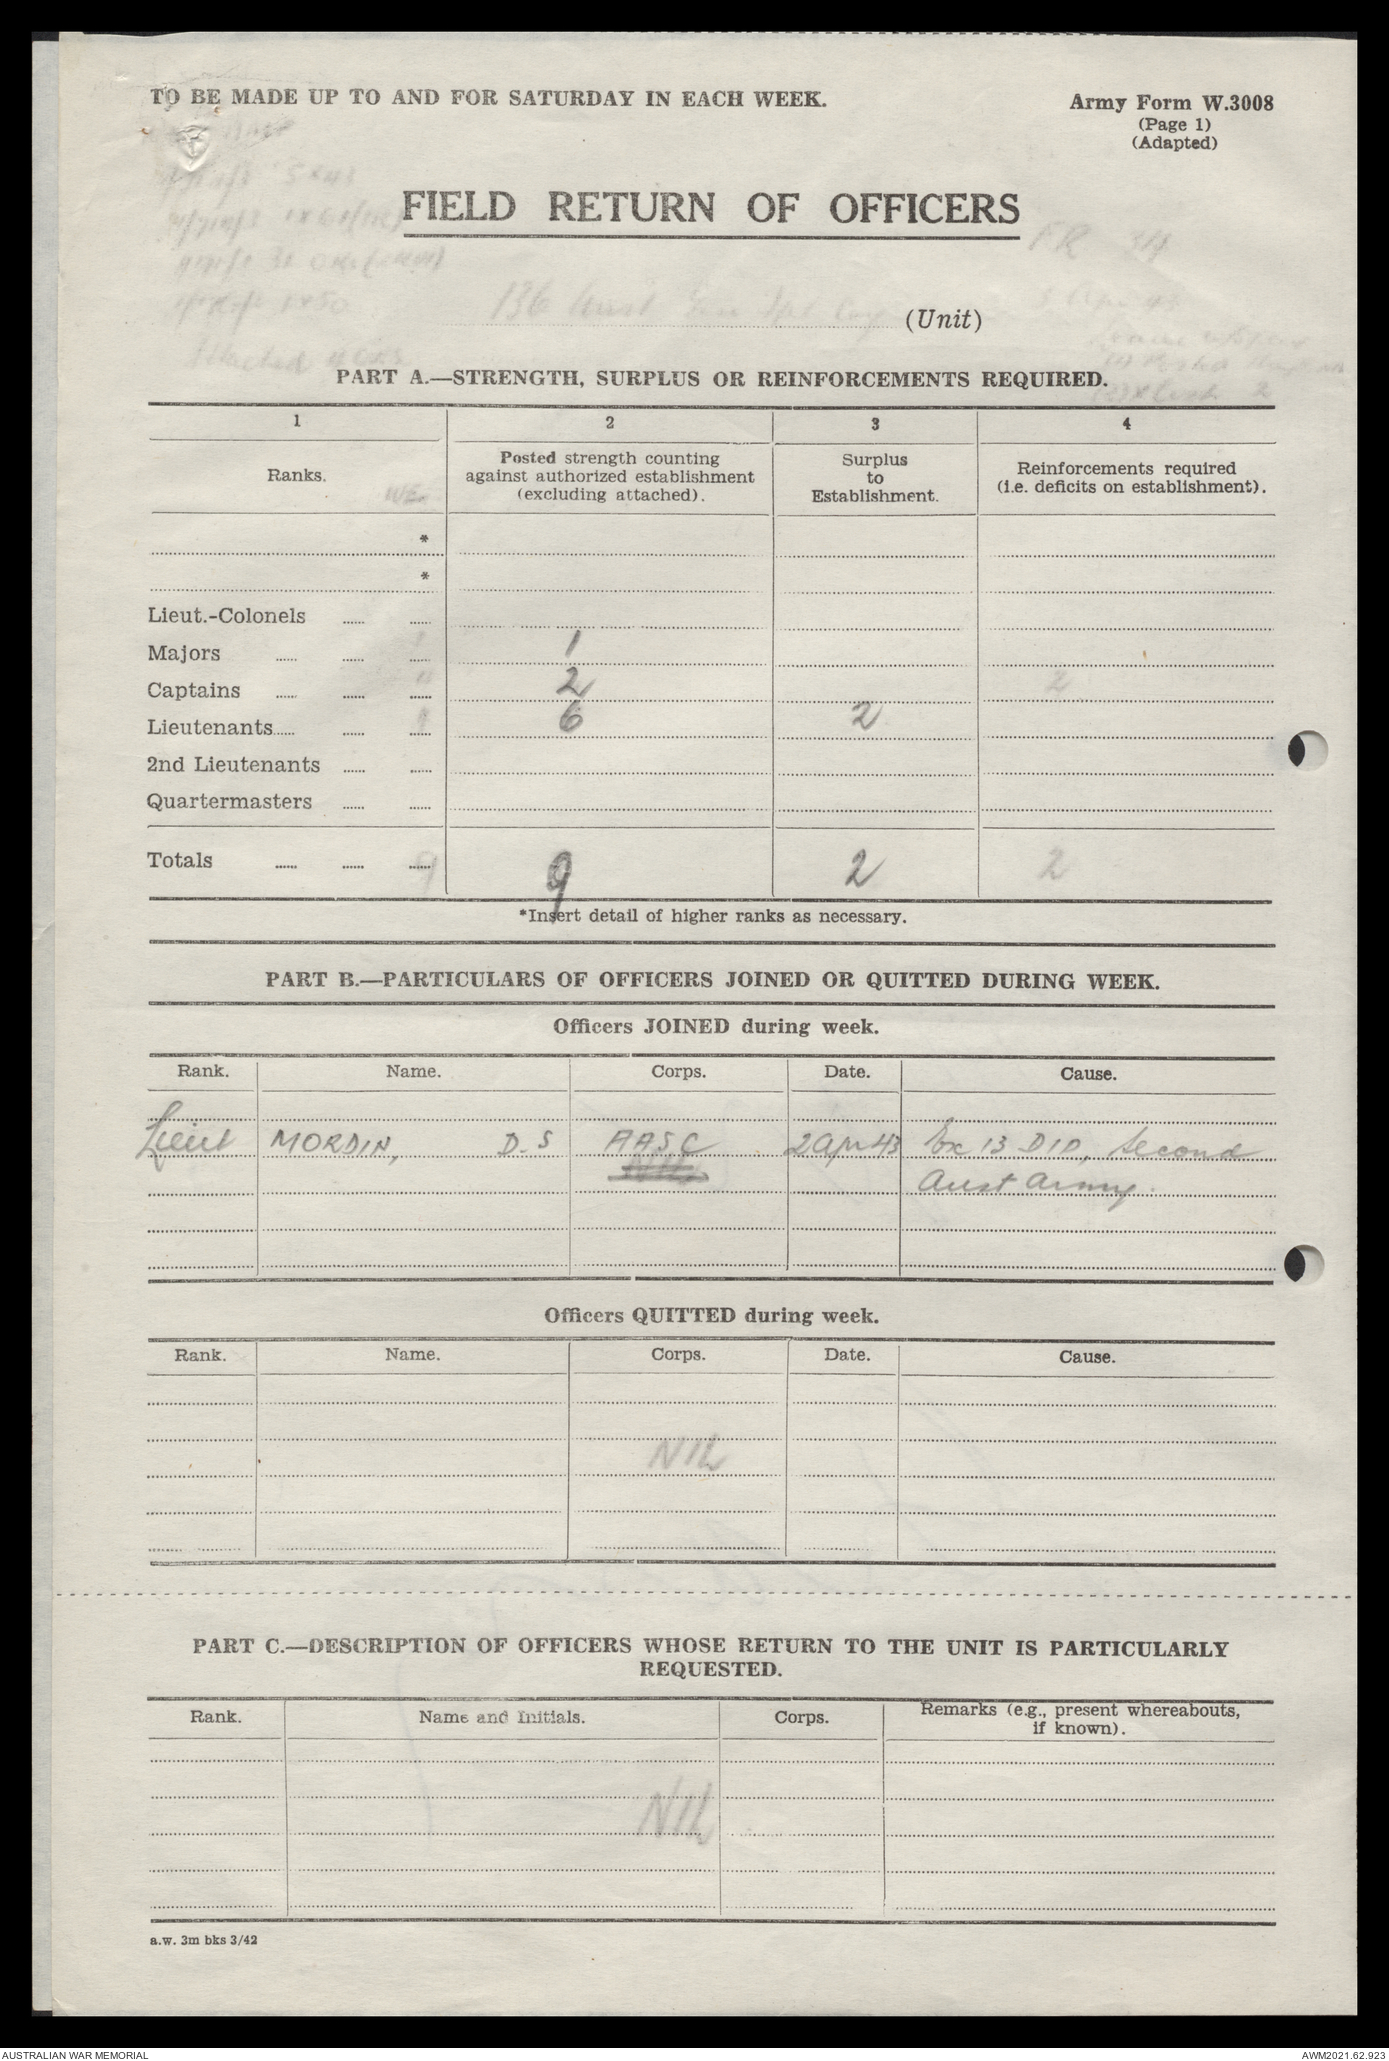 TO BE MADE UP TO AND FOR SATURDAY IN EACH WEEK.
Army Form W.3008
(Page 1)
(Adapted)
FIELD RETURN OF OFFICERS
FR
136 Aust Gen Tpt Coy (Unit)
PART A.—STRENGTH, SURPLUS OR REINFORCEMENTS REQUIRED.
1 2 3 4
Ranks. WE. Posted strength counting against authorized establishment (excluding attached). Surplus to Establishment. Reinforcements required (i.e. deficits on establishment).
*
*
Lieut.-Colonels
Majors 1
Captains 2 2
Lieutenants 6 2
2nd Lieutenants
Quartermasters
Totals 9 9 2 2
*Insert detail of higher ranks as necessary.
PART B.—PARTICULARS OF OFFICERS JOINED OR QUITTED DURING WEEK.
Officers JOINED during week.
Rank. Name. Corps. Date. Cause.
Lieut MORDIN, D.S AASC 2 Apr 43 Ex 13 DID, Second
NIL Aust Army.
Officers QUITTED during week.
Rank. Name. Corps. Date. Cause.
NIL
PART C.—DESCRIPTION OF OFFICERS WHOSE RETURN TO THE UNIT IS PARTICULARLY
REQUESTED.
Rank. Name and Initials. Corps. Remarks (e.g., present whereabouts, if known).
NIL
a.w. 3m bks 3/42
AUSTRALIAN WAR MEMORIAL
AWM2021.62.923